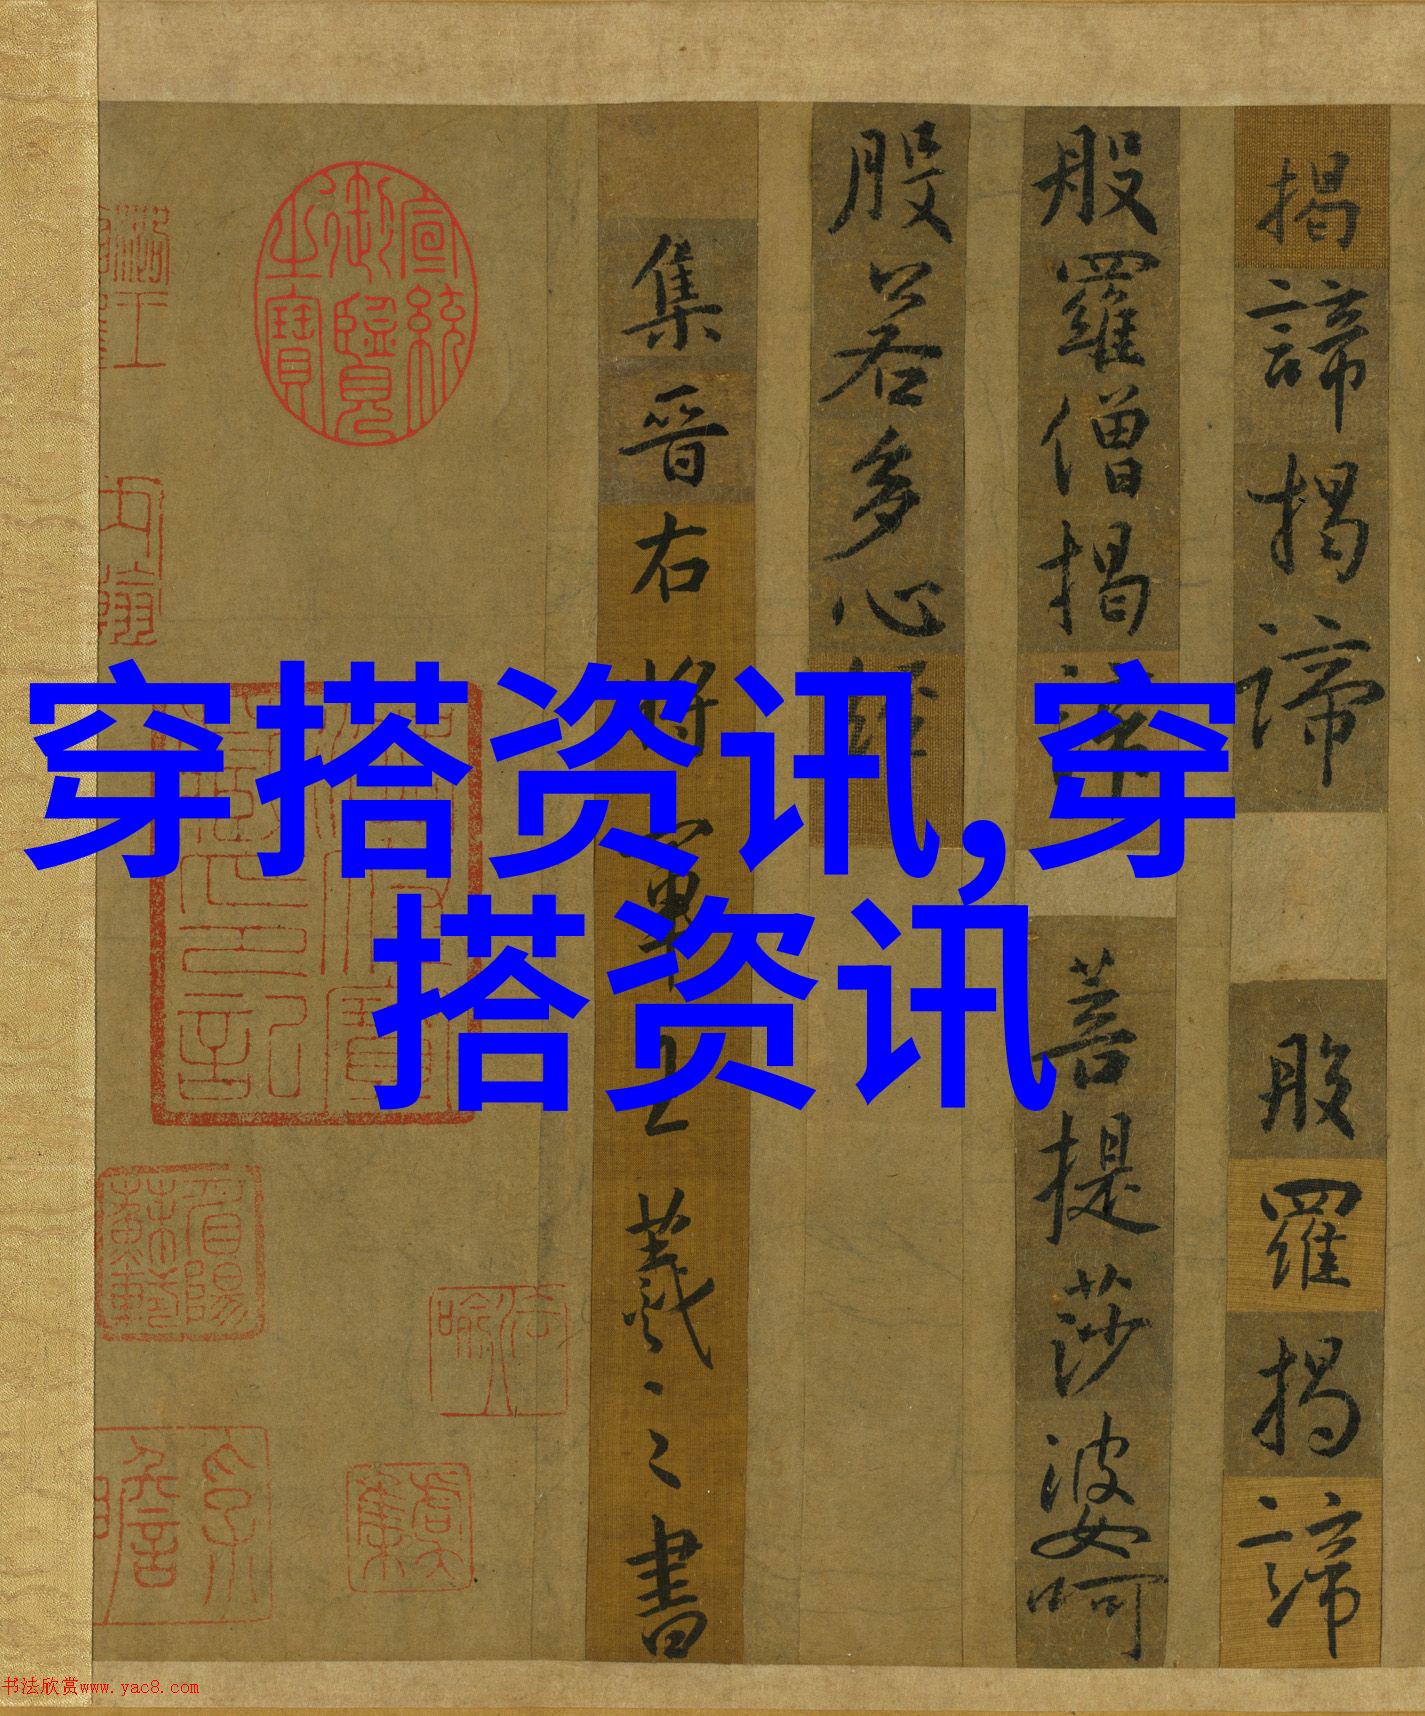 穿搭资讯,穿
搭资讯
揭諦揭諦 般羅揭諦
般羅僧揭諦 菩提莎婆呵
般若多心經
集晉右將軍王羲之書
宣統御覽之寶
书法欣赏www.yac8.com